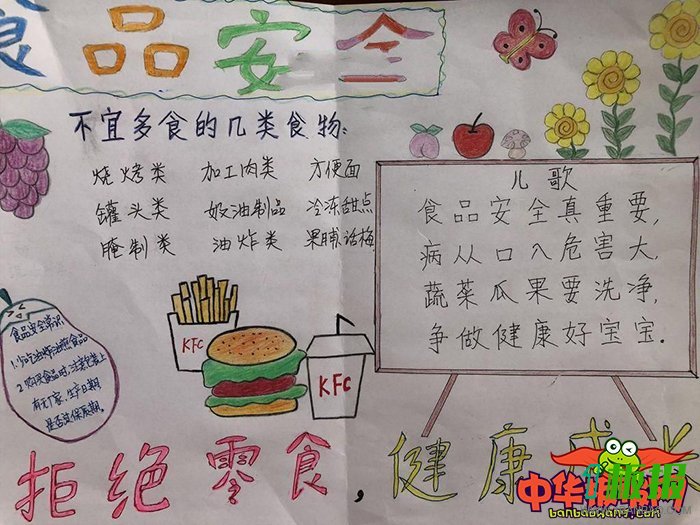 食品安全
不宜多食的几类食物:
烧烤类 加工肉类 方便面
罐头类 奶油制品 冷冻甜点
腌制类 油炸类 果脯话梅
儿歌
食品安全真重要,
病从口入危害大,
蔬菜瓜果要洗净,
争做健康好宝宝.
食品安全常识
1.少吃油炸油煎食品
2.购买食品时,注意包装上
有无厂家,生产日期
是否过保质期。
KFC
KFC
拒绝零食,健康成长
中华
报网
banbaowang.com